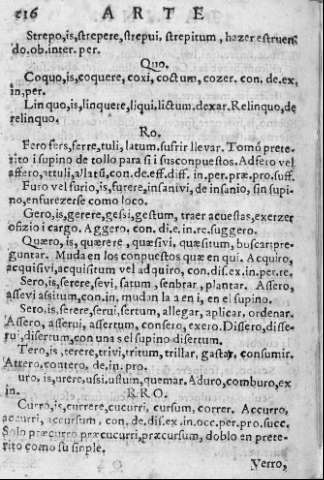 216 ARTE
Strepo,is,strepere,strepui, strepitum, hazer estruen
do.ob.inter.per.
Quo.
Coquo,is,coquere, coxi, coctum, cozer. con. de.ex,
in,per.
Linquo,is,linquere,liqui.lictum.dexar.Relinquo,de
relinquo.
Ro.
Fero fers, ferre, tuli, latum. sufrir llevar. Tomó prete-
rito i supino de tollo para si i sus conpuestos. Adfero vel
affero, attuli, allatū, con.de.eff.diff. in.per.præ.pro.suff.
Furo vel furio, is, furere, insanivi, de insanio, sin supi-
no, enfurezerse como loco.
Gero, is, gerere, gessi, gestum, traer acuestas, exerzer
ofizio i cargo. Aggero, con. di.e.in.re.suggero.
Quæro, is, quærere, quæsivi, quæsitum, buscar i pre-
guntar. Muda en los conpuestos quæ en qui. Acquiro,
acquisivi, acquisitum vel adquiro, con.dis.ex.in.per.re.
Sero, is, serere, sevi, satum, senbrar, plantar. Assero,
assevi assitum, con.in. mudan la a en i, en el supino.
Sero, is, serere, serui, sertum, allegar, aplicar, ordenar.
Assero, asserui, assertum, consero, exero. Dissero, disse-
rui, disertum, con una s el supino disertum.
Tero, is, terere, trivi, tritum, trillar, gastar, consumir.
Attero, contero, de, in. pro.
uro, is, urere, ussi, ustum, quemar. Aduro, comburo, ex
in. RRO.
Curro, is, currere, cucurri, cursum, correr. Accurro,
accurri, accursum, con. de.dis.ex.in.occ.per.pro.succ.
Solo præcurro præcucurri, præcursum, doblò en prete-
rito como su sinple.
Verro,